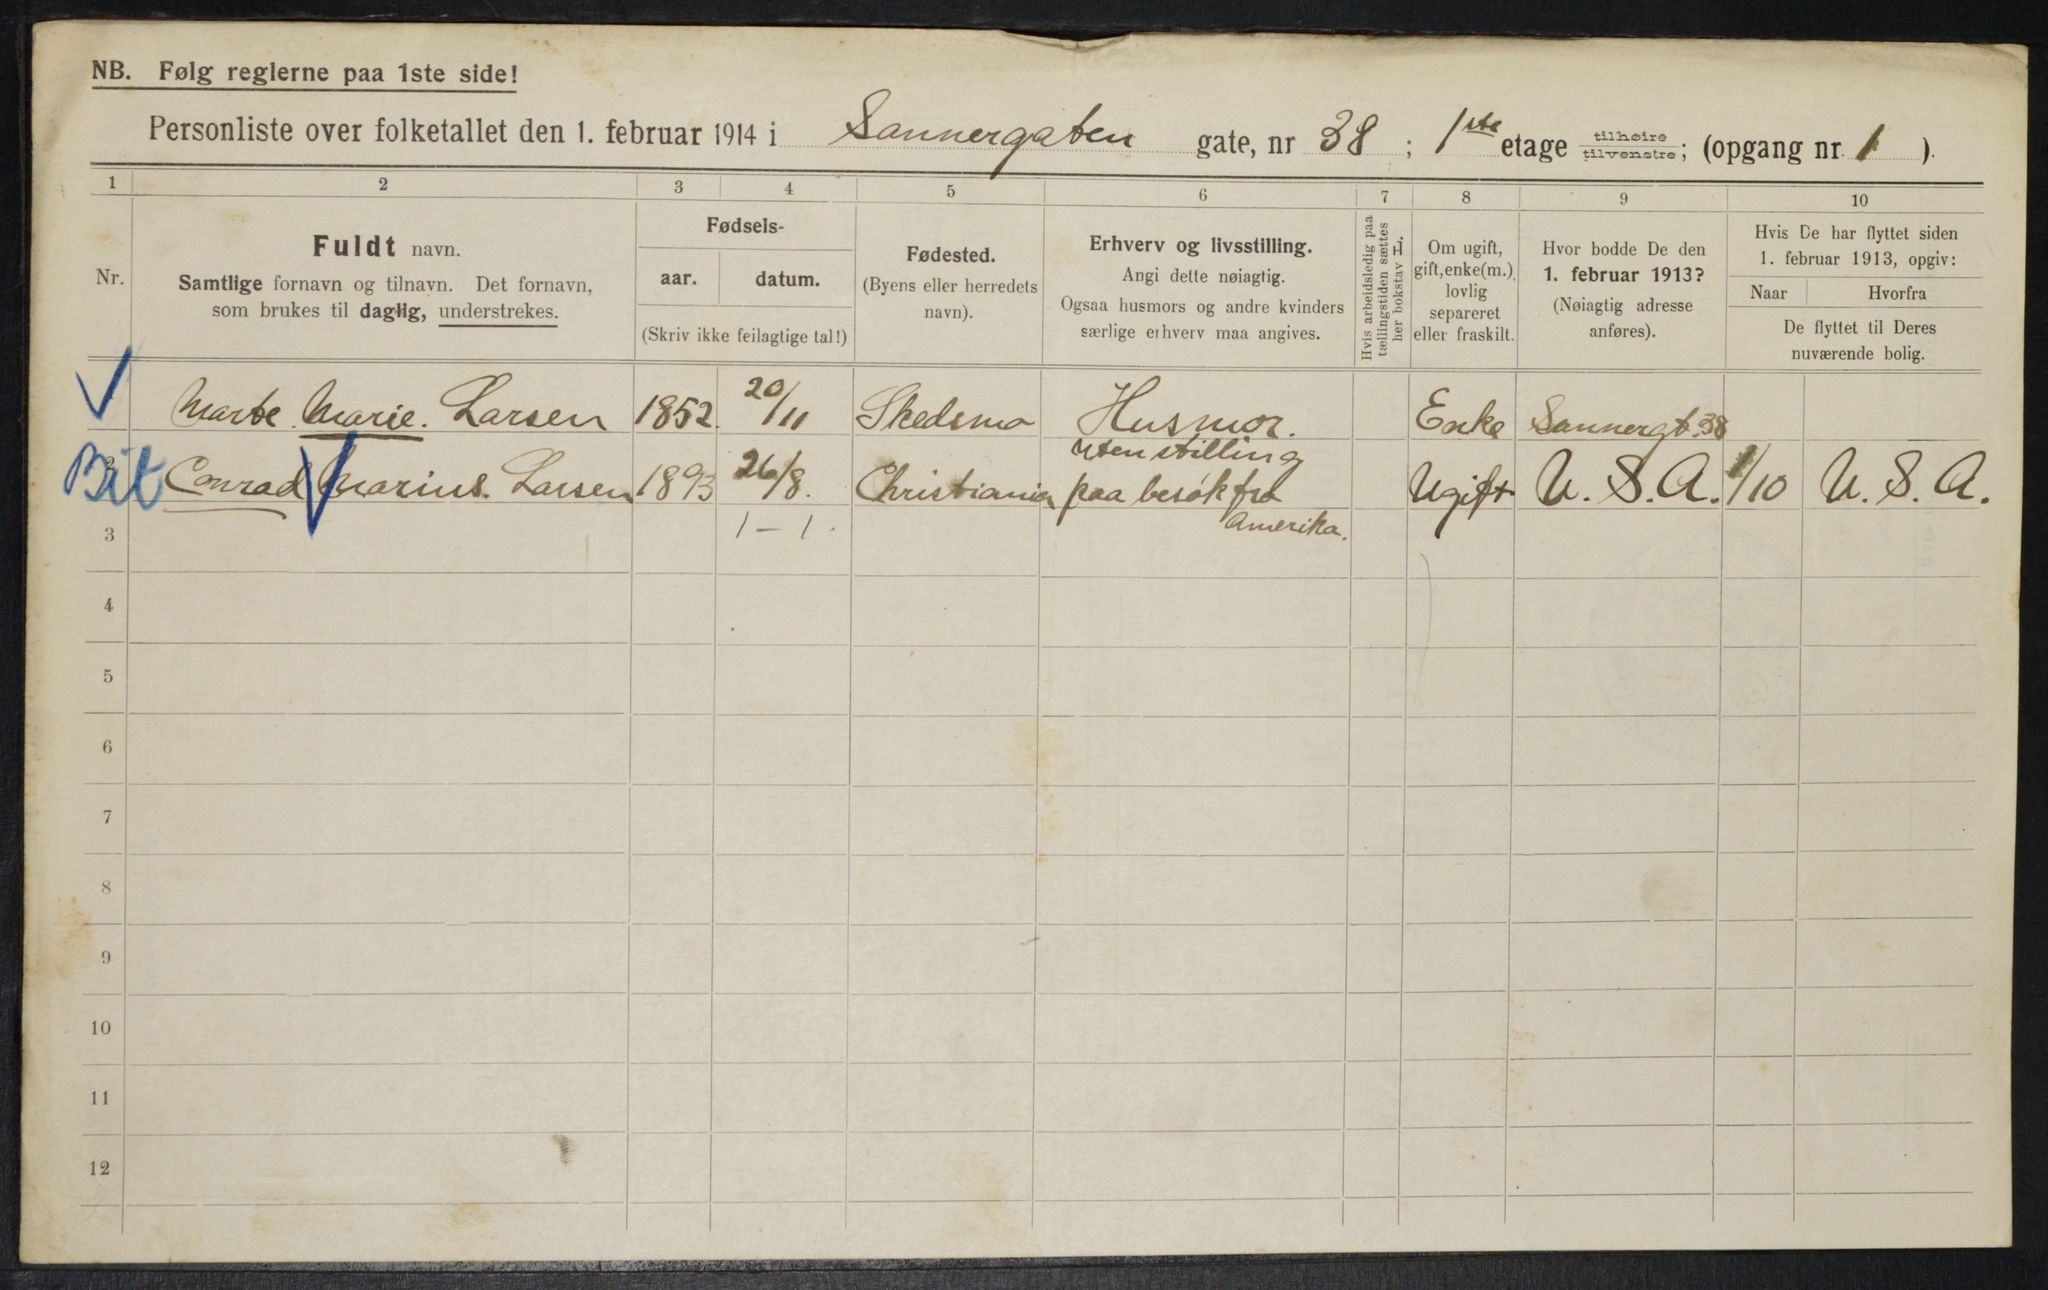 NB. Følg reglerne paa 1ste side!
Personliste over folketallet den 1. februar 1914 i Sannergaten gate, nr 38 ; 1ste etage tilhøire / tilvenstre; (opgang nr. 1 ).
1 2 3 4 5 6 7 8 9 10
Nr.
Fuldt navn.
Samtlige fornavn og tilnavn. Det fornavn,
som brukes til daglig, understrekes.
Fødsels-
aar. datum.
(Skriv ikke feilagtige tal!)
Fødested.
(Byens eller herredets
navn).
Erhverv og livsstilling.
Angi dette nøiagtig.
Ogsaa husmors og andre kvinders
særlige erhverv maa angives.
Hvis arbeidsledig paa
tællingstiden sættes
her bokstav L.
Om ugift,
gift, enke(m.),
lovlig
separeret
eller fraskilt.
Hvor bodde De den
1. februar 1913?
(Nøiagtig adresse
anføres).
Hvis De har flyttet siden
1. februar 1913, opgiv:
Naar Hvorfra
De flyttet til Deres
nuværende bolig.
Marte Marie. Larsen 1852 20/11 Skedsmo Husmor. Enke Sannergt. 38
Bit Conrad Marius. Larsen 1893 26/8. Christiania uten stilling
paa besøk fra
Amerika. Ugift U. S. A. 1/10 U. S. A.
3 1 – 1.
4
5
6
7
8
9
10
11
12